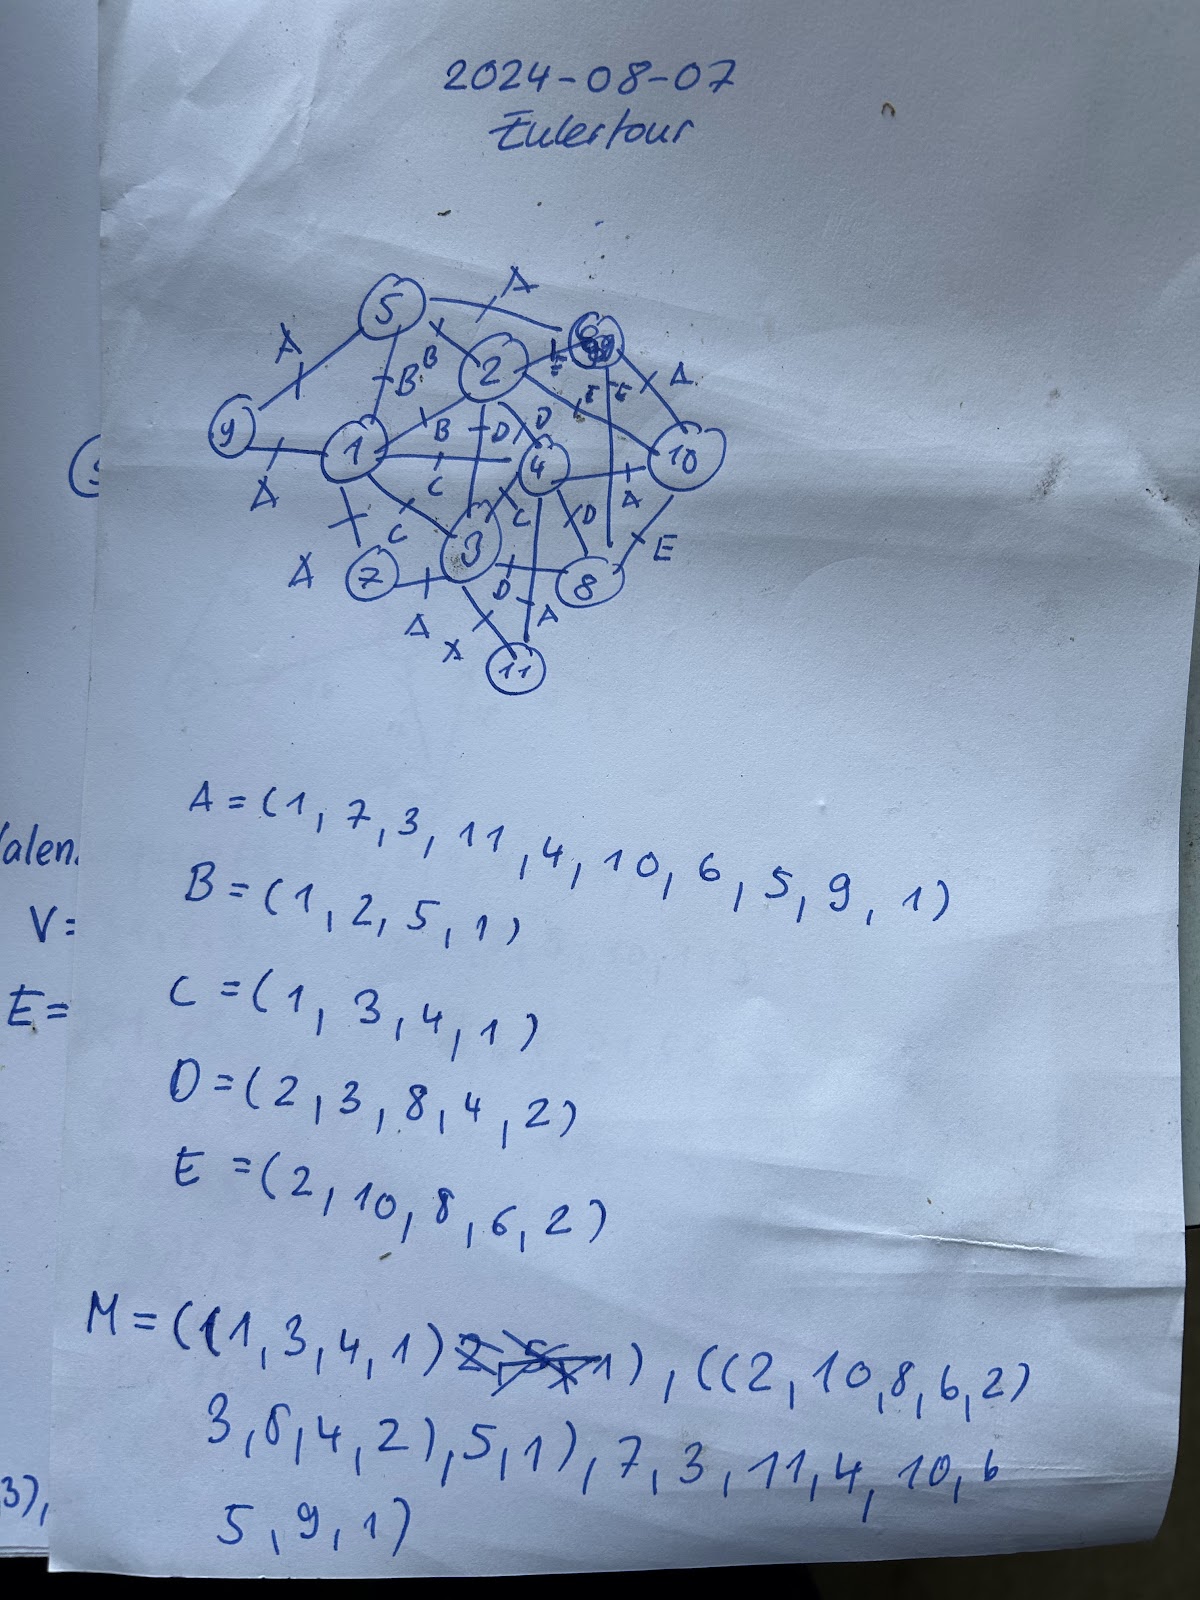 2024-08-07
Eulertour
A
5
A
6
B
B
2
E
A
A
9
E
E
1
B
D
D
10
4
A
C
C
C
A
D
E
3
A
7
D
8
A
A
A
11
A = (1, 7, 3, 11, 4, 10, 6, 5, 9, 1)
B = (1, 2, 5, 1)
C = (1, 3, 4, 1)
D = (2, 3, 8, 4, 2)
E = (2, 10, 8, 6, 2)
M = ((1, 3, 4, 1) 2, 5, 1), ((2, 10, 8, 6, 2)
3, 8, 4, 2), 5, 1), 7, 3, 11, 4, 10, 6
5, 9, 1)
alen.
V=
E=
3),